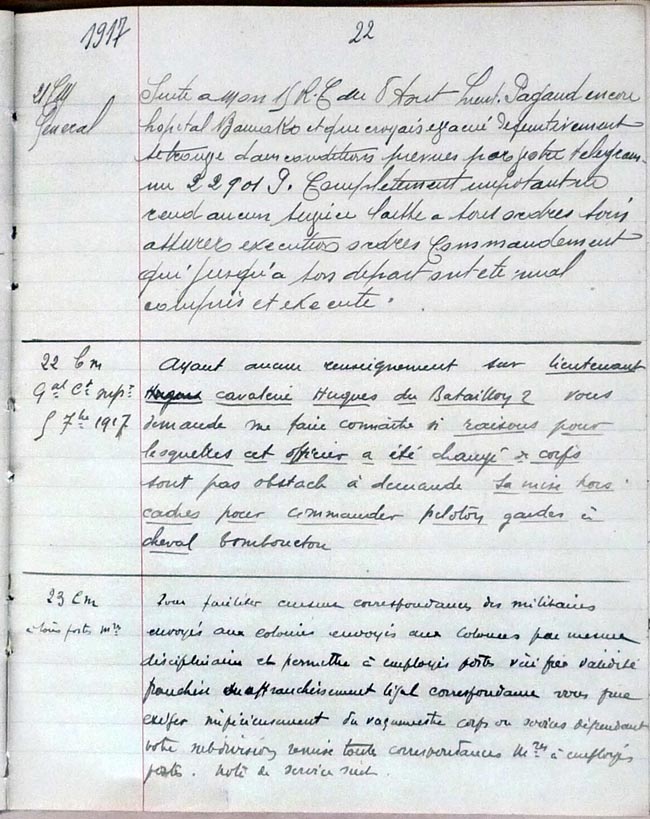 1917
22
21 CM
General
Suite a mon 15 R.C du 8 Aout Lieut. Pagaud encore
hopital Bamako et que croyais evacué definitivement
se trouve dans conditions prevues par votre telegram-
me 22901 P. Completement impotant ne
rend aucun service laisse a sous ordres soin
assurer execution ordres Commandement
qui jusqu'a son depart ont été mal
compris et executé.
22 Cm
Gal Ct supr
5 7bre 1917
Ayant aucun renseignement sur lieutenant
cavalerie Hugues du Bataillon 2 vous
demande me faire connaitre si raisons pour
lesquelles cet officier a été changé de corps
sont pas obstacle à demande sa mise hors
cadres pour commander peloton gardes à
cheval Tombouctou
23 Cm
postes mres
Pour faciliter correspondances des militaires
envoyés aux colonies envoyés aux colonies par mesure
disciplinaire et permettre à employés postes vérifier validité
franchise ou affranchissement légal correspondance vous prie
exiger impérieusement du vaguemestre corps ou services dépendant
votre subdivision remise toute correspondances mres à employés
postes. Note de service suit.